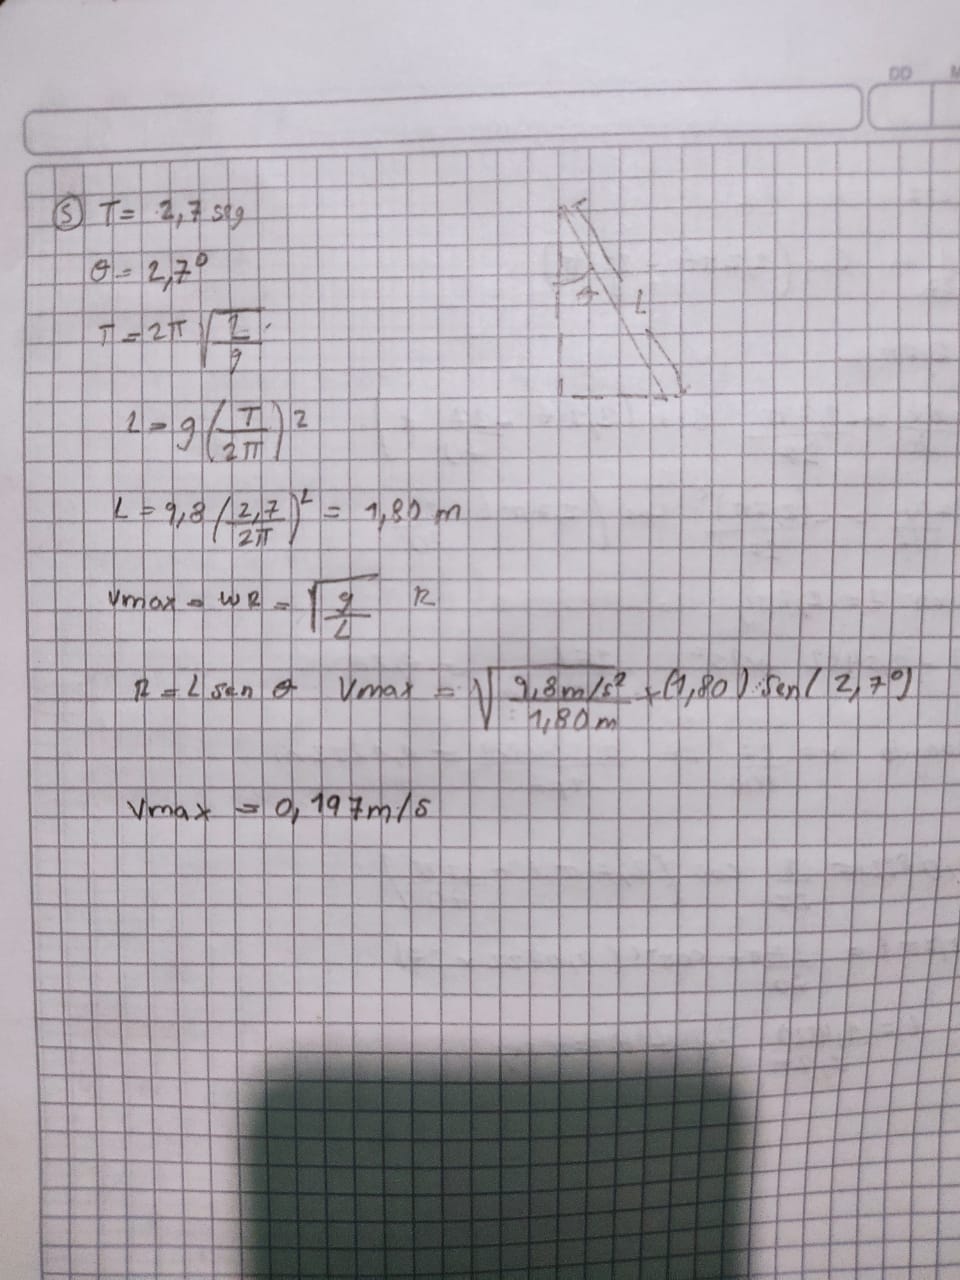 DD M
⑤ T= 2,7 seg
θ= 2,7°
T=2π √(L/g)
L=g(T/2π)2
L=9,8(2,7/2π)2 = 1,80 m
Vmax = WR = √(g/L) R
R = L sen θ Vmax = √(9,8m/s2/1,80m) x(1,80).Sen(2,7°)
Vmax = 0,197m/s
θ
L